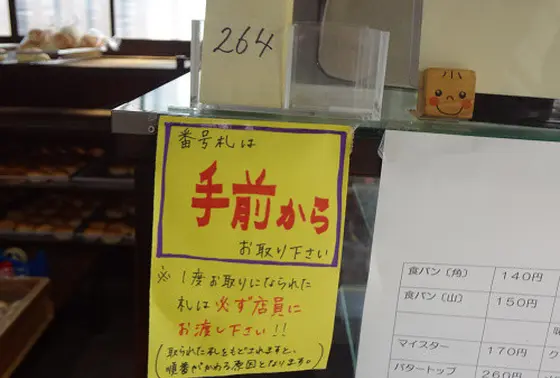 264
番号札は
手前から
お取り下さい
※ 1度お取りになられた
札は必ず店員に
お渡し下さい!!
(取られた札をもどされますと、
順番がかわる原因となります。)
食パン(角) 140円
食パン(山) 150円
マイスター 170円
バタートップ 260円